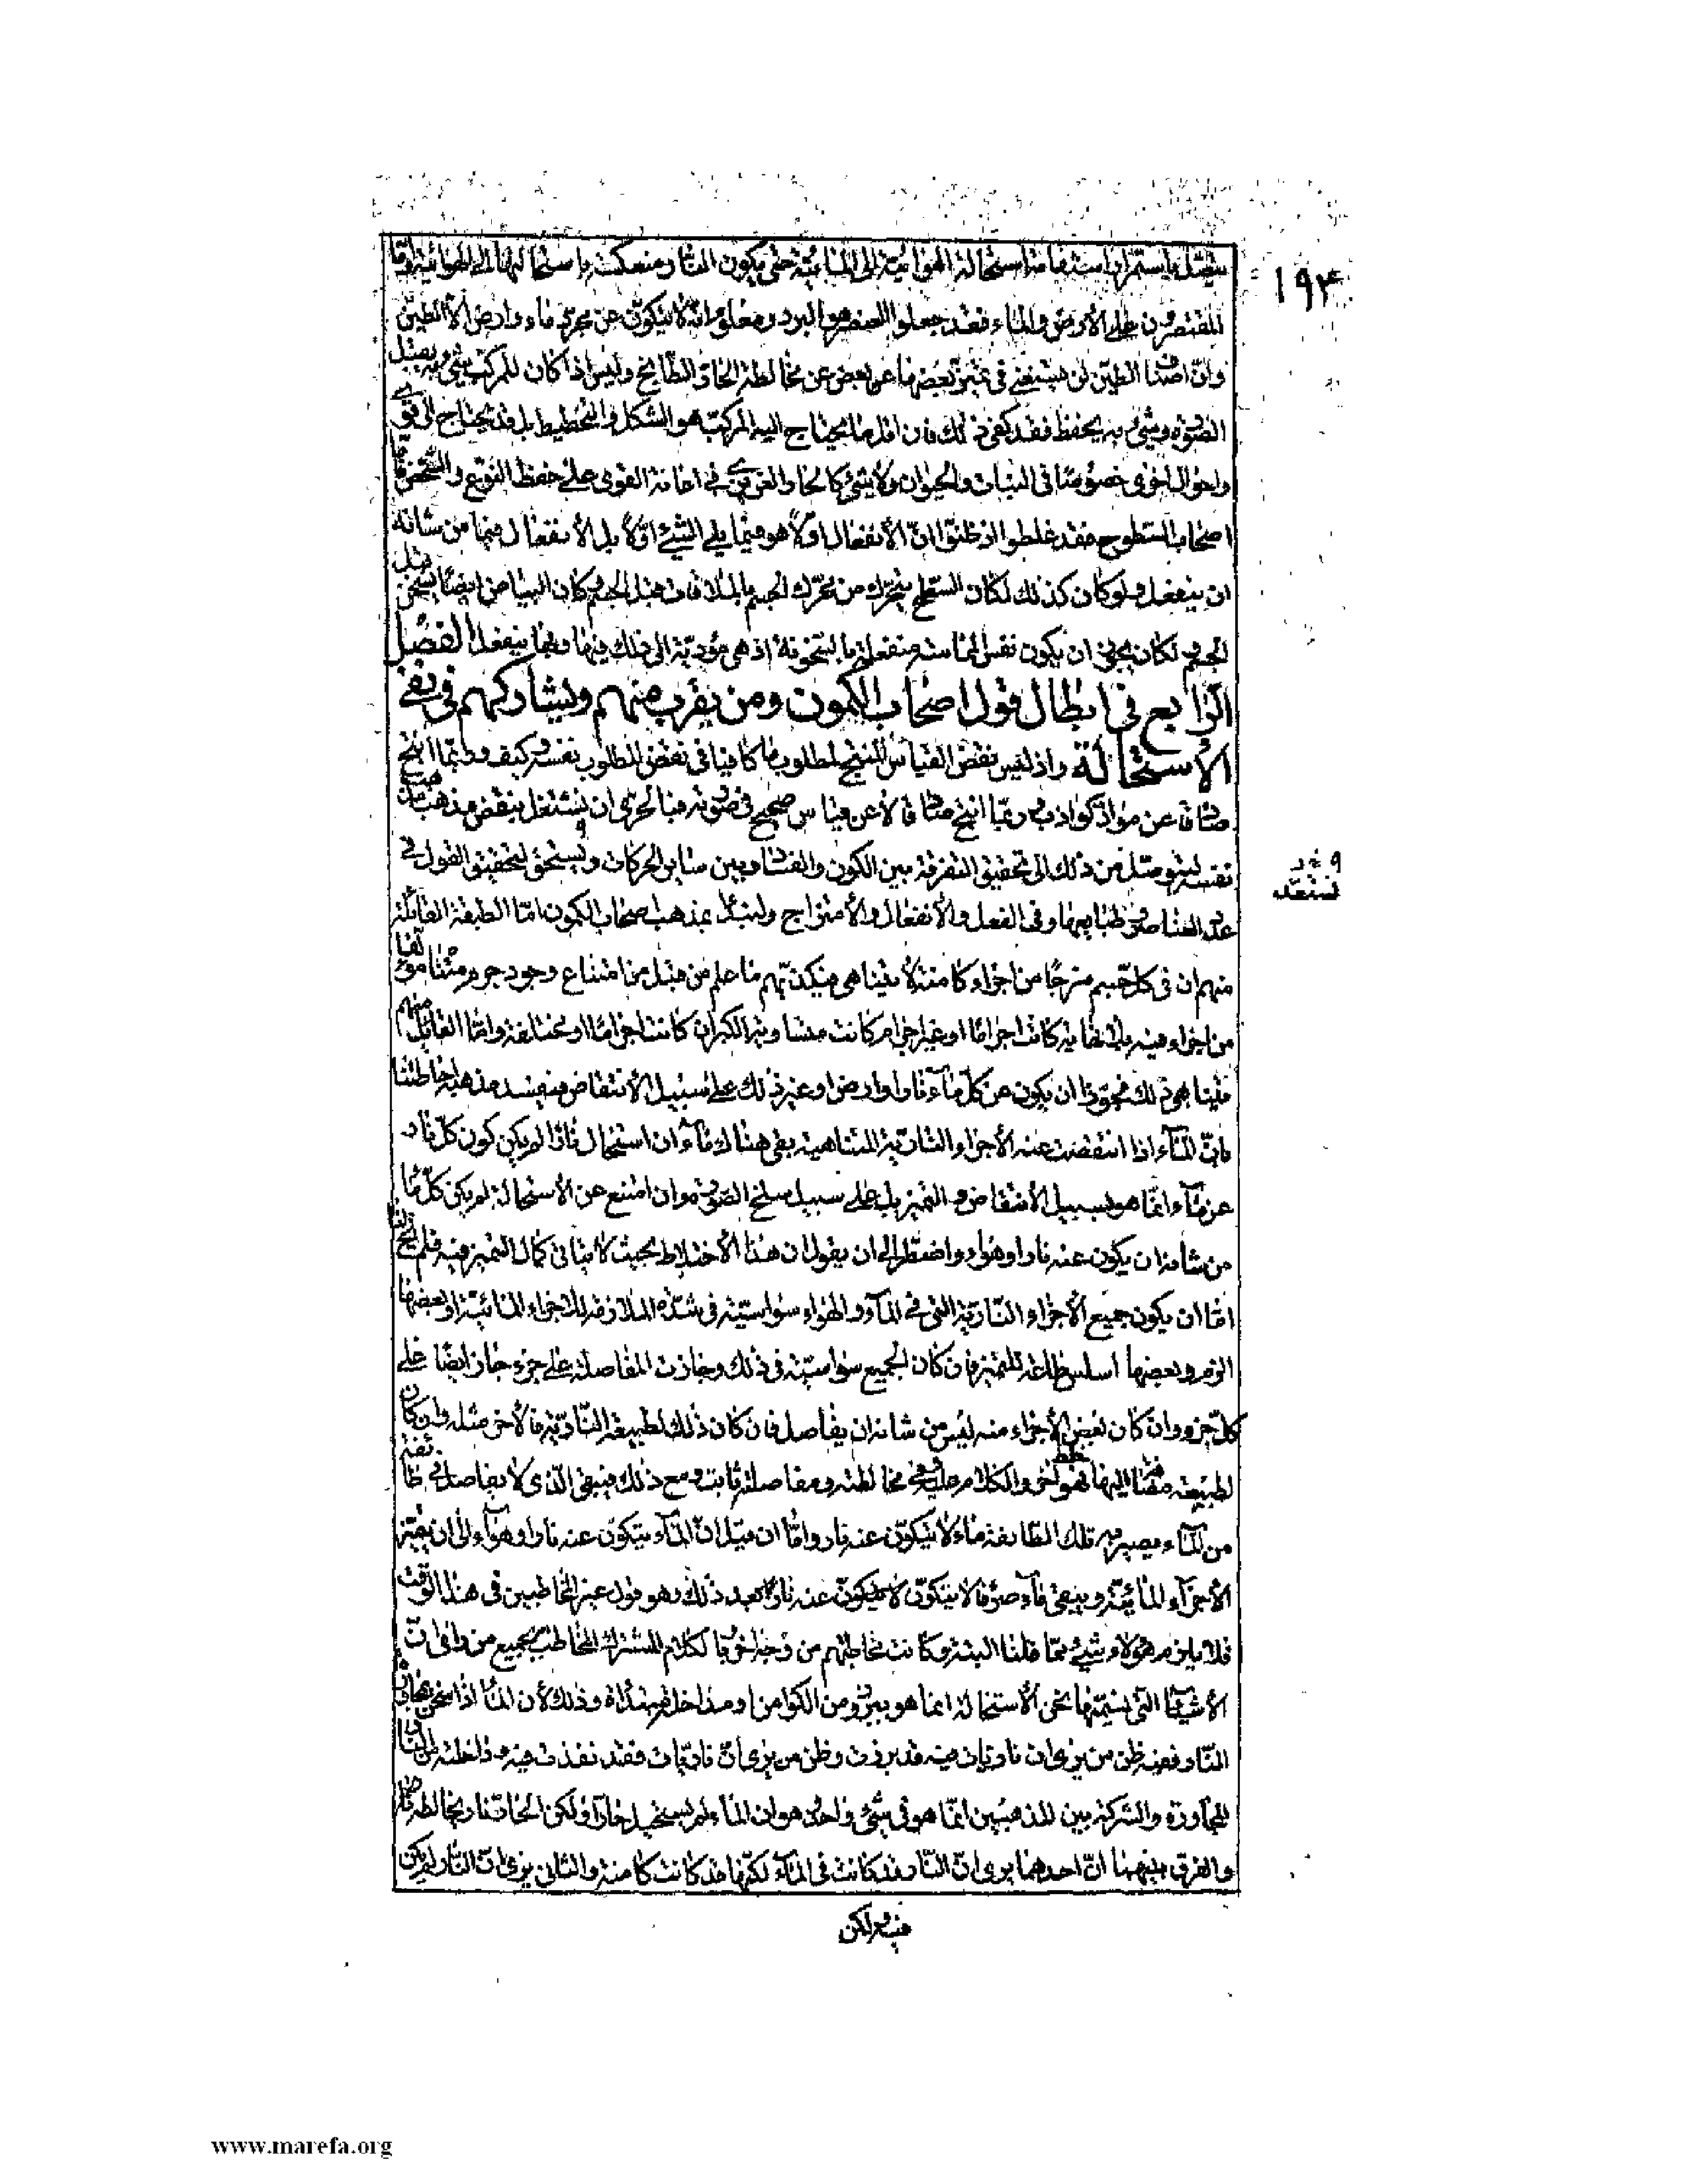 ١٩٤
يتصل باستمرار استقامة استحالة الهوائية الى المائية حتى يكون الفساد منعكسة باستحالتها الى الهوائية واما
المقتصرون على الأرض والماء فقد جعلوا العنصر هو البرد ومعلوم انه لا يتكون عن مجرد ماء وارض الا الطين
وان اصناف الطين لن يستغنى فى تميز بعضها عن بعض عن مخالطة الحار الطابخ وليس اذا كان للمركب شئ به يقبل
الصورة وشئ به يحفظ فقد كفى ذلك فان اقل ما يحتاج اليه المركب هو الشكل والتخطيط بل قد يحتاج الى قوى
واحوال اخرى خصوصا فى النبات والحيوان ولا شئ كالحار الغريزى فى اعانة القوى على حفظ النوع والشخص واما
اصحاب السطوح فقد غلطوا اذ ظنوا ان الأنفعال اولا هو فيما يلى الشئ اولا بل الأنفعال فيما من شانه
ان ينفعل ولو كان كذلك لكان السطح يتحرك من محرك الجسم بالملاقات قبل الجسم وكان البياض ايضا يسخن قبل
الجسم لكان يجب ان يكون نفس المماسة منفعلة بالسخونة اذ هى مؤدية الى ذلك فيها وبها ينفعل الفصل
الرابع فى ابطال قول اصحاب الكمون ومن يقرب منهم ويشاركهم فى نفى
الأستحالة واذ ليس نقض القياس المنتج لمطلوب ما كافيا فى نقض المطلوب نفسه وكيف وربما انتج
صادقا عن مواد كواذب وربما انتج صادقا لا عن قياس صحيح فى صورته فبالحرى ان نشتغل بنقض مذهب مذهب
نفسه ليتوصل من ذلك الى تحقيق التفرقة بين الكون والفساد وبين سائر الحركات ويستحق لتحقيق القول فى
عدد العناصر وطبايعها وفى الفعل والأنفعال والأمتزاج ولنبدأ بمذهب اصحاب الكمون اما الطبقة القائلة
منهم ان فى كل جسم مزجا من اجزاء كامنة لا يتناهى فيكذبهم ما علم من قبل من امتناع وجود جرم متناه مؤلفا
من اجزاء فيه بلا نهاية كانت اجراما او غير اجرام كانت متساوية الكبر ان كانت اجراما او مختلفة واما القائل منهم
بتناهى ذلك مجوزا ان يكون عن كل ماء نار او ارض او غير ذلك على سبيل الأنتقاض فيفسد مذهبه احاطتنا
بان الماء اذا انتقضت عنه الأجزاء النارية المتناهية بقى هناك ماء ان استحال نارا لم يكن كون كل نار
عن ماء انما هو بسبيل الأنتقاض والتميز بل على سبيل سلخ الصورة وان امتنع عن الأستحالة لم يكن كل ما
من شانه ان يكون عنه نار او هواء واضطر الى ان يقول ان هذا الأختلاط بحيث لا يتأتى كمال التميز فيه فلم يخل
اما ان يكون جميع الأجزاء النارية التى فى الماء والهواء سواسية فى شدة الملازمة للاجزاء المائية او بعضها
الزم وبعضها اسلس طاعة للتميز فان كان الجميع سواسية فى ذلك وجازت المفاصلة على جزء جاز ايضا على
كل جزء وان كان بعض الأجزاء منه ليس من شانه ان يفاصل فان كان ذلك لطبيعة النارية فالاخر مثله وان كان
لطبيعة مضافة اليها فهو خلط اخر والكلام عليه فى مخالطته ومفاصلته ثابت ومع ذلك فيبقى الذى لا يفاصل فى طائفة
من الماء يصير به تلك الطائفة ماء لا يتكون عنه نار واما ان قيل ان الماء يتكون عنه نار او هواء الى ان يتميز
الأجزاء المائية ويبقى ماء صرفا لا يتكون لا يتكون عنه نار بعد ذلك وهو قول غير المخاطبين فى هذا الوقت
فلا يلزم هؤلاء شئ مما قلنا البتة وكانت مخاطبتهم من وجه اخر بالكلام المشترك المخاطب لجميع من راى ان
الأشياء التى نسميها نحن الأستحالة انما هو ببروز من الكوامن او مداخلة مبتدأة وذلك لأن الماء اذا سخن بمجاورة
النار فمنه ظن من يرى ان ناريات فيه قد برزت وظن من يرى ان ناريات فقد نفذت فيه وداخلته من النار
المجاورة والشركة بين المذهبين انما هو فى شئ واحد هو ان الماء لم يستحيل حارا ولكن الحار نار يخالطه
والفرق بينهما ان احدهما يرى ان النار قد كانت فى الماء لكنها قد كانت كامنة والثانى يرى ان النار لم يكن
فيه ولكن